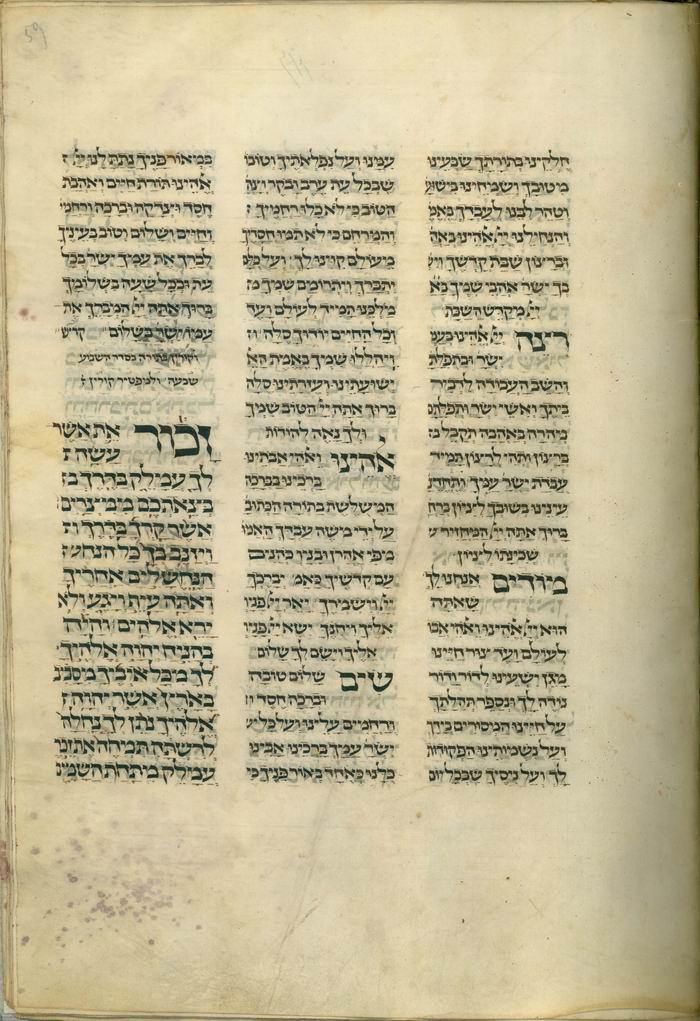 חלקינו בתורתך שבעינו
מטובך ושמחינו בישוע
וטהר לבנו לעבדך באמ
והנחילנו יי אהינו באה
וברצון שבת קדשך ויש
בך ישר אהבי שמך בא
יי מקדש השבת
רצה יי אהינו בעמ
ישר ובתפלת
והשב העבודה לדביר
ביתך ואשי ישר ותפלתם
מהרה באהבה תקבל בר
ברצון ותהי לרצון תמיד
עבודת ישר עמך ותחזנ
עינינו בשובך לציון ברח
ברוך אתה יי המחזיר ש
שכינתו לציון
מודים אנחנו לך
שאתה
הוא יי אהינו ואהי אבו
לעולם ועד צור חיינו
מגן ישענו לדור ודור
נודה לך ונספר תהלתך
על חיינו המסורים בידך
ועל נשמותינו הפקודות
לך ועל ניסיך שבכל יום
עמנו ועל נפלאתיך וטובו
שבכל עת ערב ובקר וצה
הטוב כי לא כלו רחמיך
והמרחם כי לא תמו חסדיך
מעולם קוינו לך ועל כלם
יתברך ויתרומם שמך מ
מלכנו תמיד לעולם ועד
וכל החיים יודוך סלה
ויהללו שמך באמת הא
ישועתינו ועזרתינו סלה
ברוך אתה יי הטוב שמך
ולך נאה להודות
אהינו ואהי אבותינו
ברכינו בברכה
המשלשת בתורה הכתוב
על ידי משה עבדך האמו
מפי אהרן ובניו כהנים
עם קדשיך כאמ יברכך
יי וישמרך יאר יי פניו
אליך ויחנך ישא יי פניו
אליך וישם לך שלום
שים שלום טובה
וברכה חסד
ורחמים עלינו ועל כל יש
ישר עמך ברכינו אבינו
כלנו כאחד באור פניך כי
במאור פניך נתת לנו יי
אהינו תורת חיים ואהבת
חסד וצדקה וברכה ורחמי
וחיים ושלום וטוב בעיניך
לברך את עמך ישר בכל
עת ובכל שעה בשלומך
ברוך אתה יי המברך את
עמו ישר בשלום קדיש
וקורין בתורה בסדר השבוע
שבעה ולמפטיר קורין
זכור את אשר
עשה
לך עמלק בדרך
בצאתכם ממצרים
אשר קרך בדרך
ויזנב בך כל הנחש
הנחשלים אחריך
ואתה עיף ויגע ולא
ירא אלהים והיה
בהניח יהוה אלהיך
לך מכל איביך מסביב
בארץ אשר יהוה
אלהיך נתן לך נחלה
לרשתה תמחה את זכר
עמלק מתחת השמי